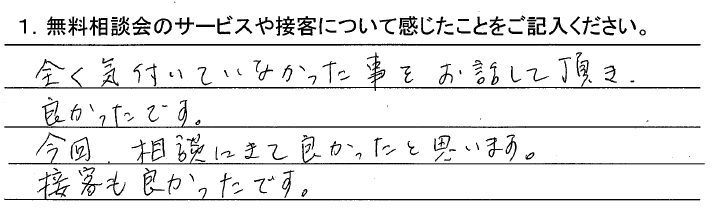 1. 無料相談会のサービスや接客について感じたことをご記入ください。
全く気付いていなかった事をお話して頂き、
良かったです。
今回、相談にきて良かったと思います。
接客も良かったです。